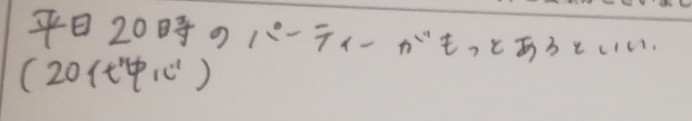 平日20時のパーティーがもっとあるといい.
(20代中心)